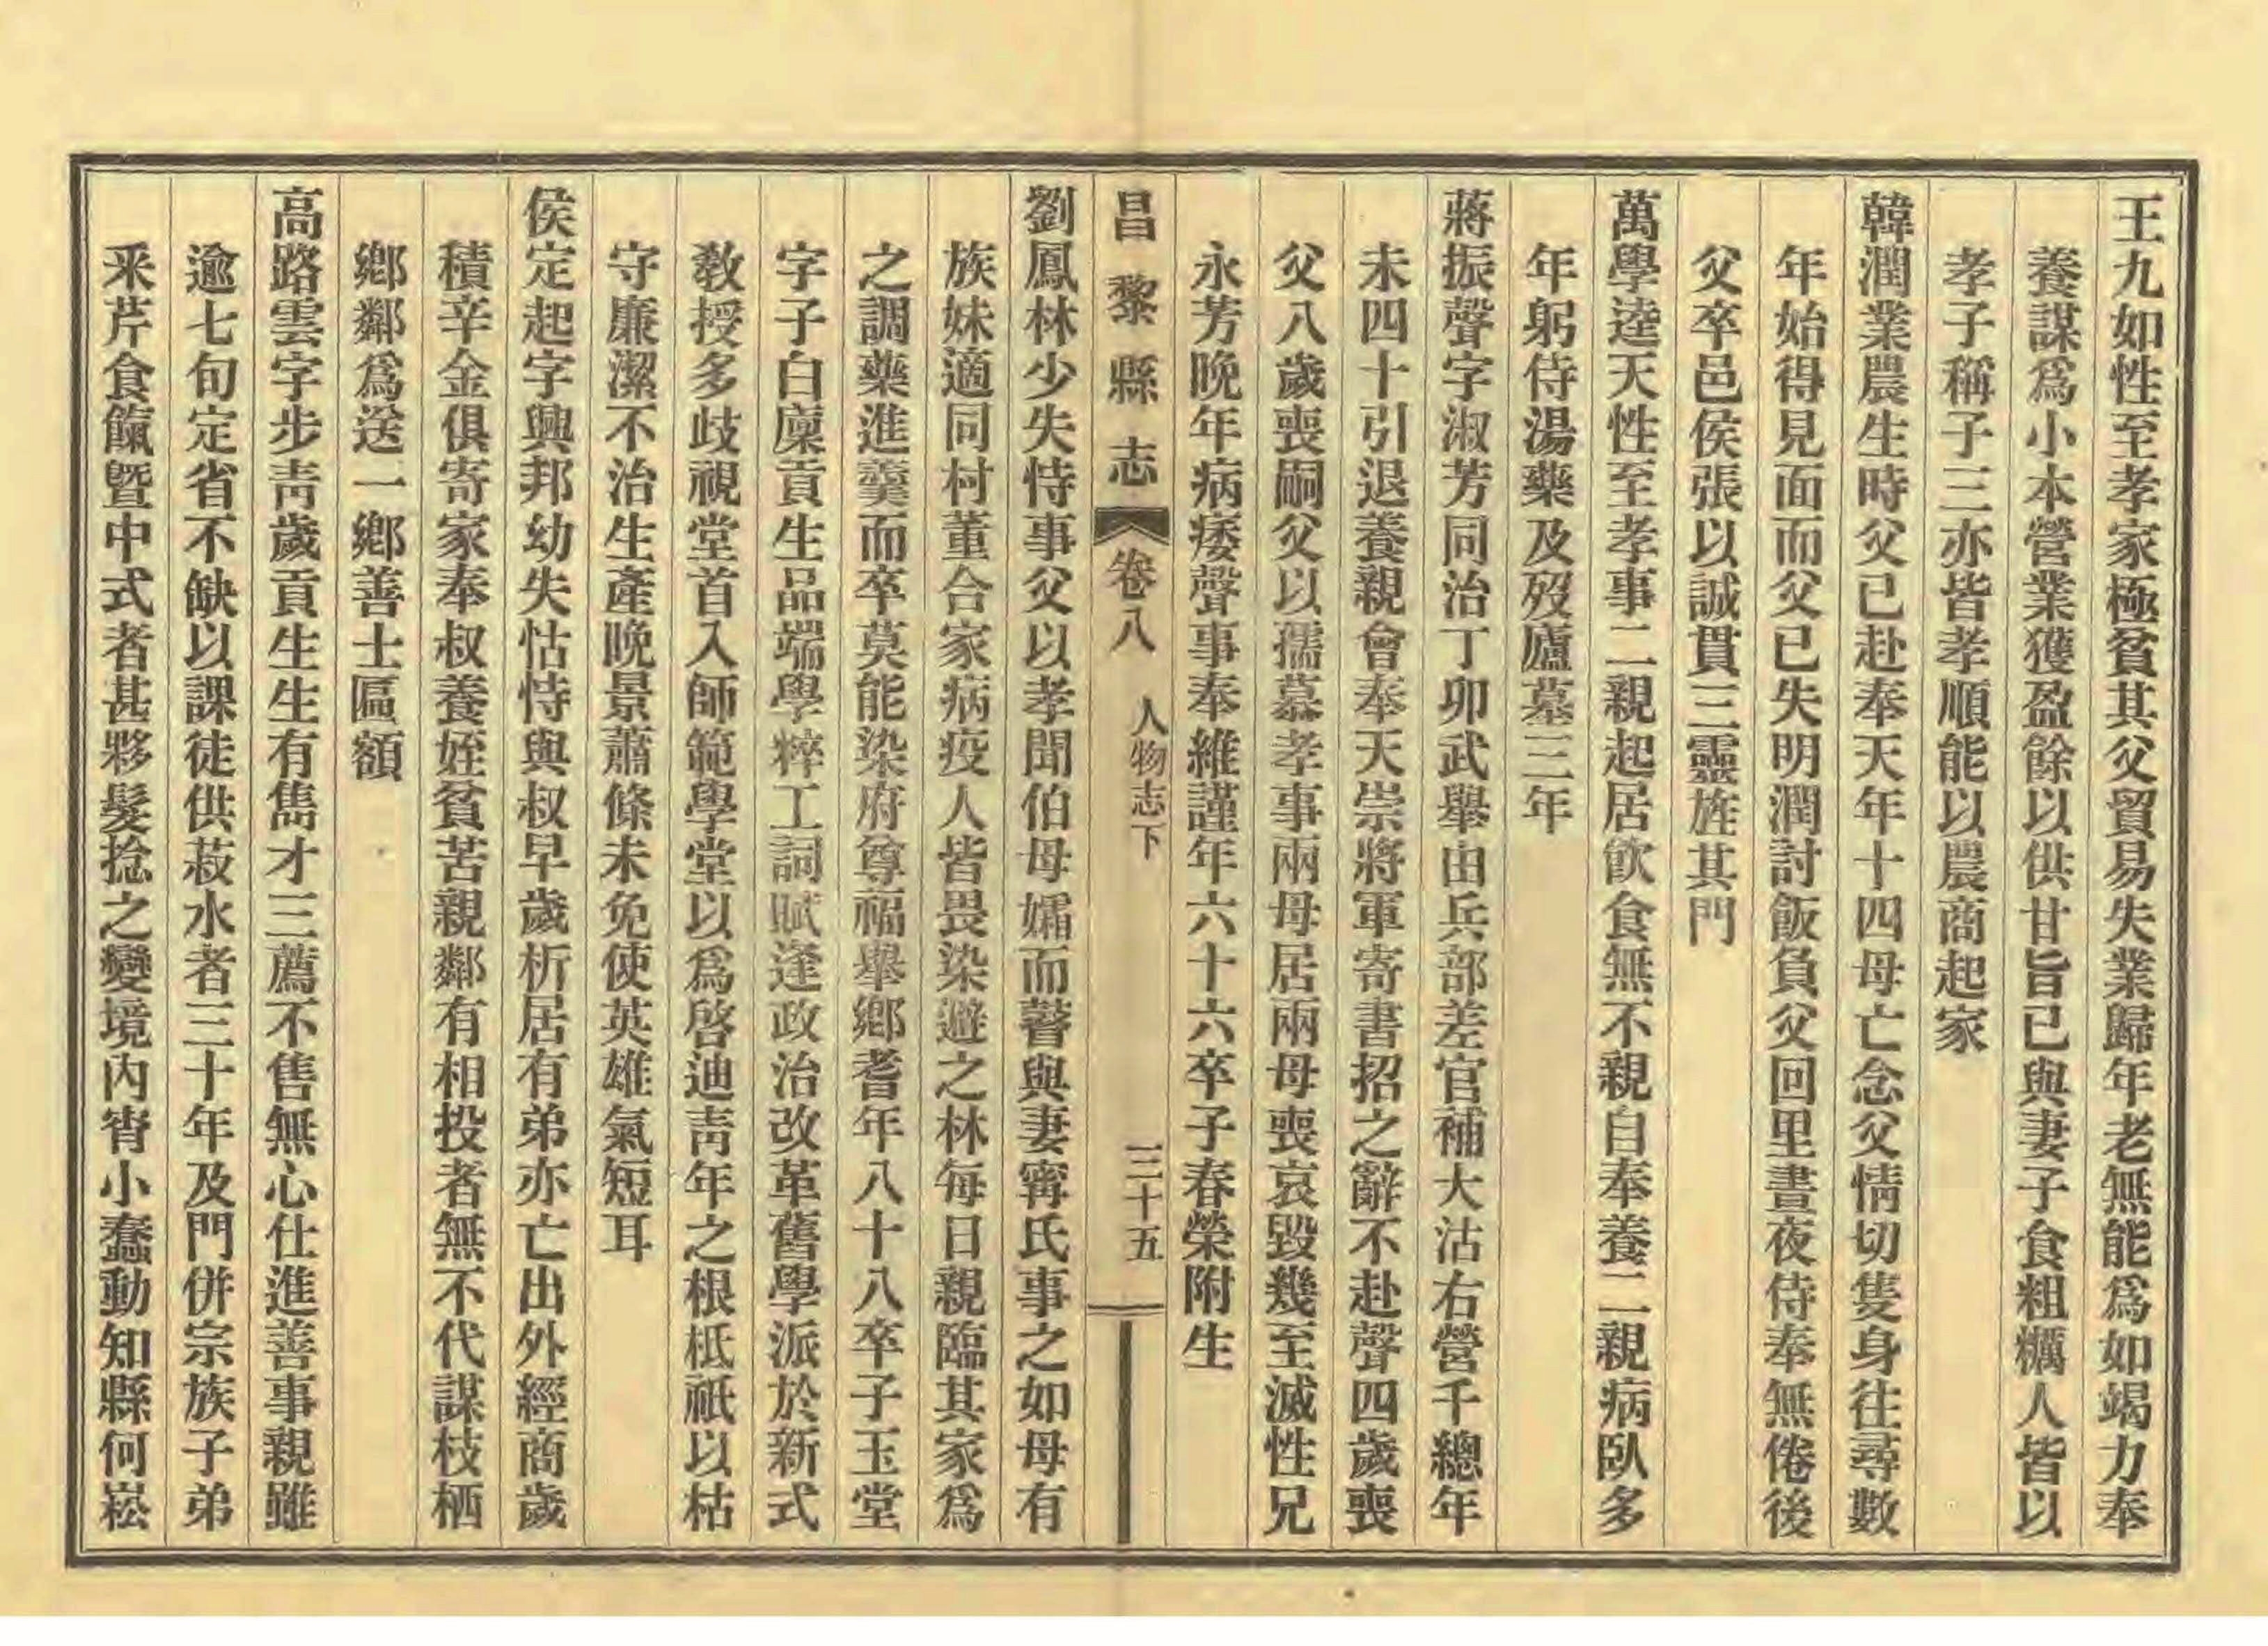 王九如性至孝家極貧其父貿易失業歸年老無能爲如竭力奉
養謀爲小本營業獲盈餘以供甘旨已與妻子食粗糲人皆以
孝子稱子三亦皆孝順能以農商起家
韓潤業農生時父已赴奉天年十四母亡念父情切隻身往尋數
年始得見面而父已失明潤討飯負父回里晝夜侍奉無倦後
父卒邑侯張以誠貫三靈旌其門
萬學逵天性至孝事二親起居飲食無不親自奉養二親病臥多
年躬侍湯藥及歿廬墓三年
蔣振聲字淑芳同治丁卯武舉由兵部差官補大沽右營千總年
未四十引退養親會奉天崇將軍寄書招之辭不赴聲四歲喪
父八歲喪嗣父以孺慕孝事兩母居兩母喪哀毀幾至滅性兄
永芳晚年病痿聲事奉維謹年六十六卒子春榮附生
昌黎縣志 卷八 人物志下 三十五
劉鳳林少失恃事父以孝聞伯母孀而瞽與妻甯氏事之如母有
族妹適同村董合家病疫人皆畏染避之林每日親臨其家爲
之調藥進羹而卒莫能染府尊福舉鄉耆年八十八卒子玉堂
字子白廩貢生品端學粹工詞賦逢政治改革舊學派於新式
敎授多歧視堂首入師範學堂以爲啓迪靑年之根柢祇以枯
守廉潔不治生產晚景蕭條未免使英雄氣短耳
侯定起字興邦幼失怙恃與叔早歲析居有弟亦亡出外經商歲
積辛金俱寄家奉叔養姪貧苦親鄰有相投者無不代謀枝栖
鄉鄰爲送一鄉善士匾額
高路雲字步靑歲貢生生有雋才三薦不售無心仕進善事親雖
逾七旬定省不缺以課徒供菽水者三十年及門併宗族子弟
釆芹食餼曁中式者甚夥髮捻之變境內宵小蠢動知縣何崧